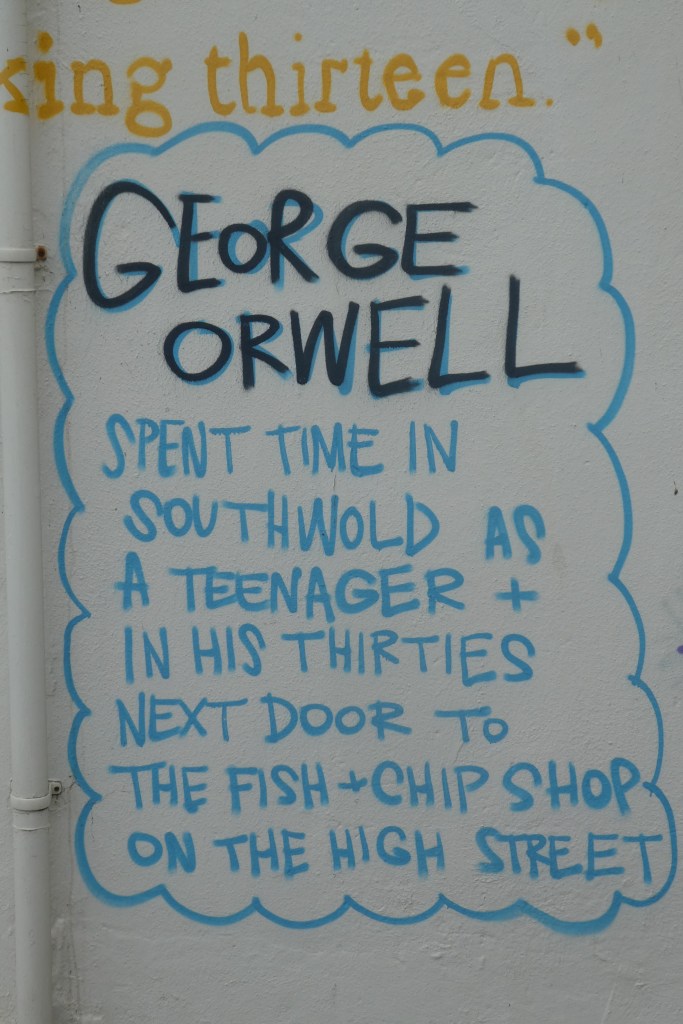 king thirteen."
GEORGE
ORWELL
SPENT TIME IN
SOUTHWOLD AS
A TEENAGER +
IN HIS THIRTIES
NEXT DOOR TO
THE FISH + CHIP SHOP
ON THE HIGH STREET